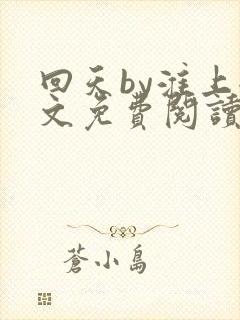 回天by淮上
文免費閱讀
蒼小島